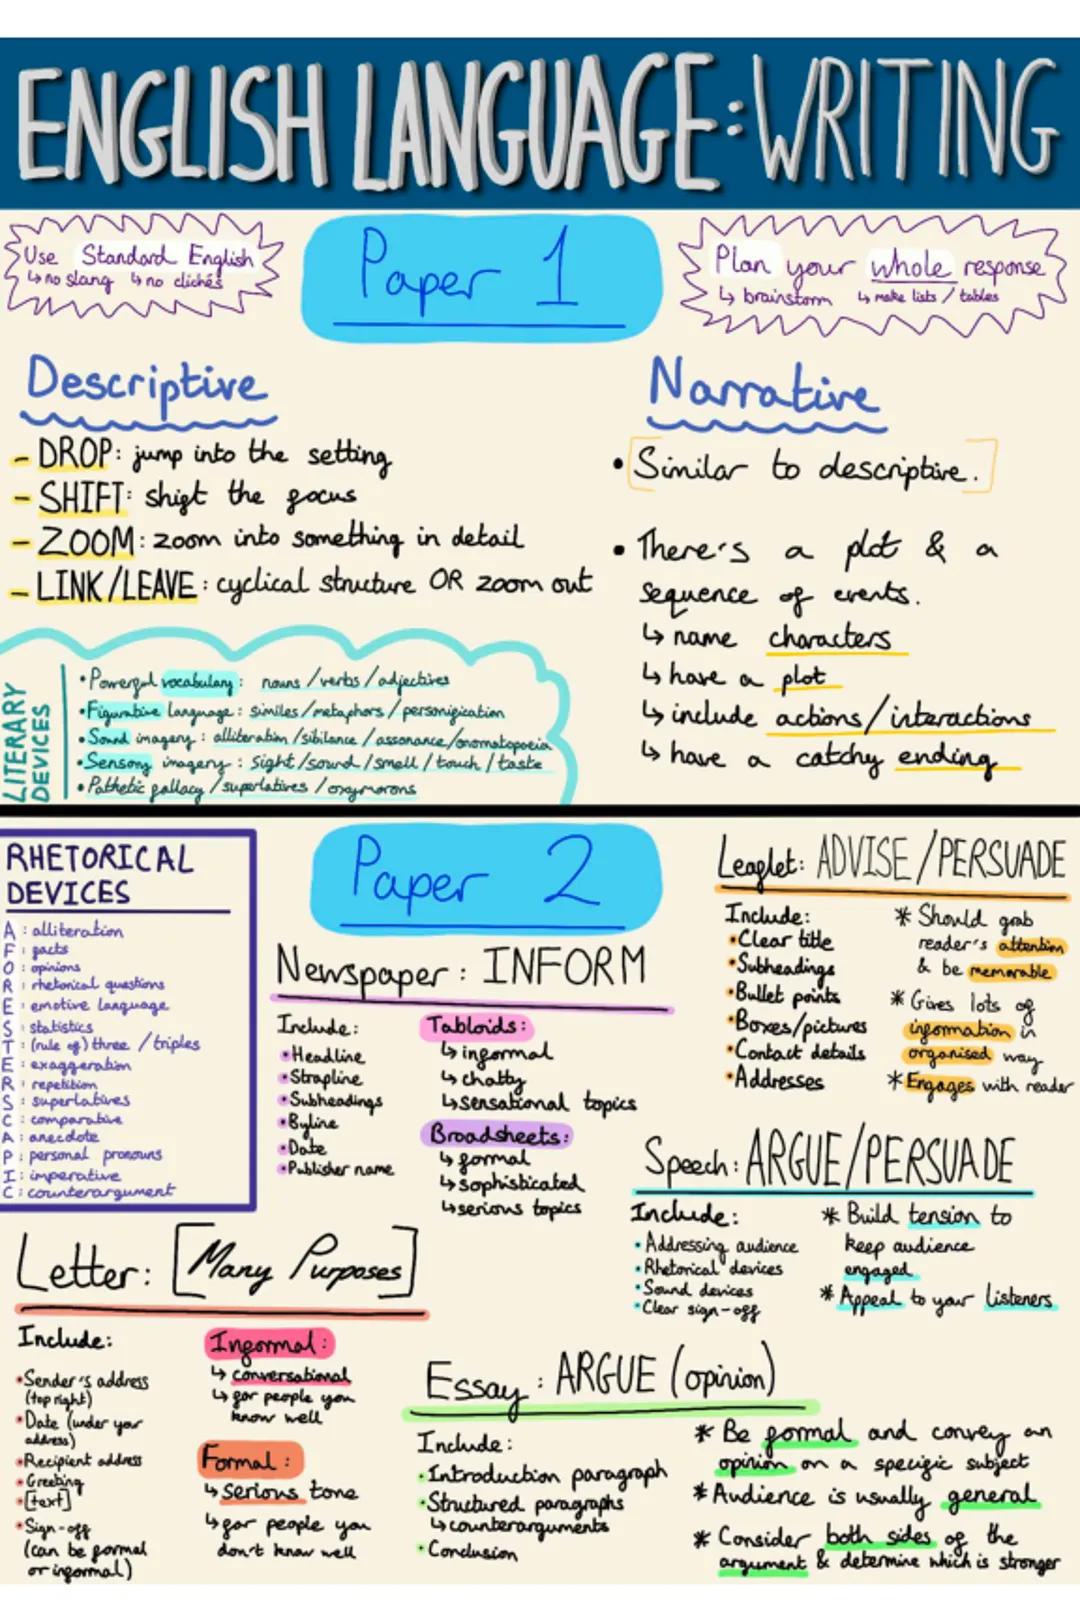 ENGLISH LANGUAGE: WRITING
Use Standard English
↳ no slang ↳ no clichés
Paper 1
Plan your whole response
↳ brainstorm ↳ make lists / tables
Descriptive
- DROP: jump into the setting
- SHIFT: shift the focus
- ZOOM: zoom into something in detail
- LINK/LEAVE: cyclical structure OR zoom out
LITERARY
DEVICES
• Powerful vocabulary: nouns / verbs / adjectives
• Figurative language: similes / metaphors / personification
• Sound imagery: alliteration / sibilance / assonance / onomatopoeia
• Sensory imagery: sight / sound / smell / touch / taste
• Pathetic fallacy / superlatives / oxymorons
Narrative
• Similar to descriptive.
• There's a plot & a
sequence of events.
↳ name characters
↳ have a plot
↳ include actions/interactions
↳ have a catchy ending
RHETORICAL
DEVICES
A: alliteration
F: facts
O: opinions
R: rhetorical questions
E: emotive language
S: statistics
T: (rule of) three / triples
E: exaggeration
R: repetition
S: superlatives
C: comparative
A: anecdote
P: personal pronouns
I: imperative
C: counterargument
Paper 2
Newspaper: INFORM
Include:
• Headline
• Strapline
• Subheadings
• Byline
• Date
• Publisher name
Tabloids:
↳ informal
↳ chatty
↳ sensational topics
Broadsheets:
↳ formal
↳ sophisticated
↳ serious topics
Leaflet: ADVISE/PERSUADE
Include:
• Clear title
• Subheadings
• Bullet points
• Boxes/pictures
• Contact details
• Addresses
* Should grab
reader's attention
& be memorable
* Gives lots of
information in
organised way
* Engages with reader
Speech: ARGUE/PERSUADE
Include:
• Addressing audience
• Rhetorical devices
• Sound devices
• Clear sign-off
* Build tension to
keep audience
engaged
* Appeal to your listeners
Letter: [Many Purposes]
Include:
• Sender's address
(top right)
• Date (under your
address)
• Recipient address
• Greeting
• [text]
• Sign-off
(can be formal
or informal)
Informal:
↳ conversational
↳ for people you
know well
Formal:
↳ Serious tone
↳ for people you
don't know well
Essay: ARGUE (opinion)
Include:
• Introduction paragraph
• Structured paragraphs
↳ counterarguments
• Conclusion
* Be formal and convey an
opinion on a specific subject
* Audience is usually general
* Consider both sides of the
argument & determine which is stronger